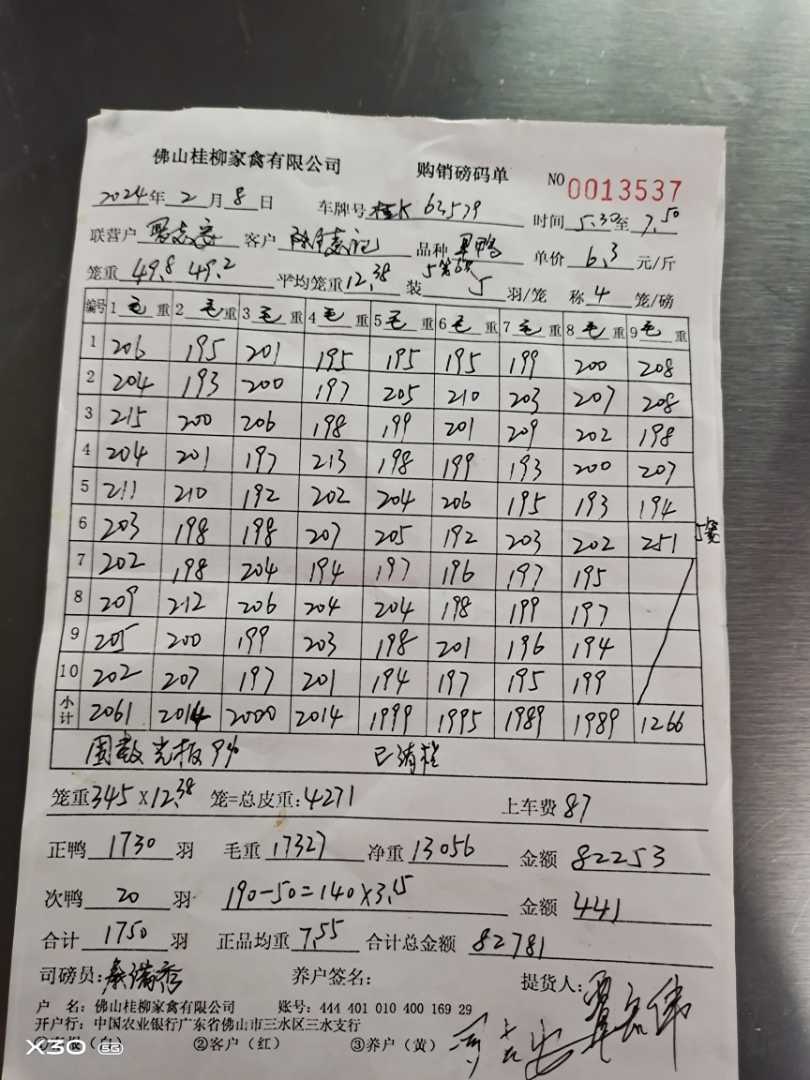 佛山桂柳家禽有限公司 购销磅码单 NO 0013537
2024年2月8日 车牌号 桂K 63579 时间 5.30至7.50
联营户 客户 品种 鸭 单价 6.3 元/斤
笼重 49.8 49.2 平均笼重 12.38 装 5 羽/笼 称 4 笼/磅
编号 1 毛 重 2 毛 重 3 毛 重 4 毛 重 5 毛 重 6 毛 重 7 毛 重 8 毛 重 9 毛 重
1 206 195 201 195 195 195 199 200 208
2 204 193 200 197 205 210 203 207 208
3 215 200 206 198 199 201 209 202 198
4 204 201 197 213 198 199 193 200 207
5 211 210 192 202 204 206 195 193 194
6 203 198 198 207 205 192 203 202 251 5笼
7 202 198 204 194 197 196 197 195
8 209 212 206 204 204 198 199 197
9 205 200 199 203 198 201 196 194
10 202 207 197 201 194 197 195 199
小计 2061 2014 2000 2014 1999 1995 1989 1989 1266
9% 已消
笼重 345 X 12.38 笼=总皮重: 4271 上车费 87
正鸭 1730 羽 毛重 17327 净重 13056 金额 82253
次鸭 20 羽 190-50=140X3.15 金额 441
合计 1750 羽 正品均重 7.55 合计总金额 82781
司磅员: 养户签名: 提货人:
户 名: 佛山桂柳家禽有限公司 账号: 444 401 010 400 169 29
开户行: 中国农业银行广东省佛山市三水区三水支行
(白) ②客户(红) ③养户(黄)
X30 5G